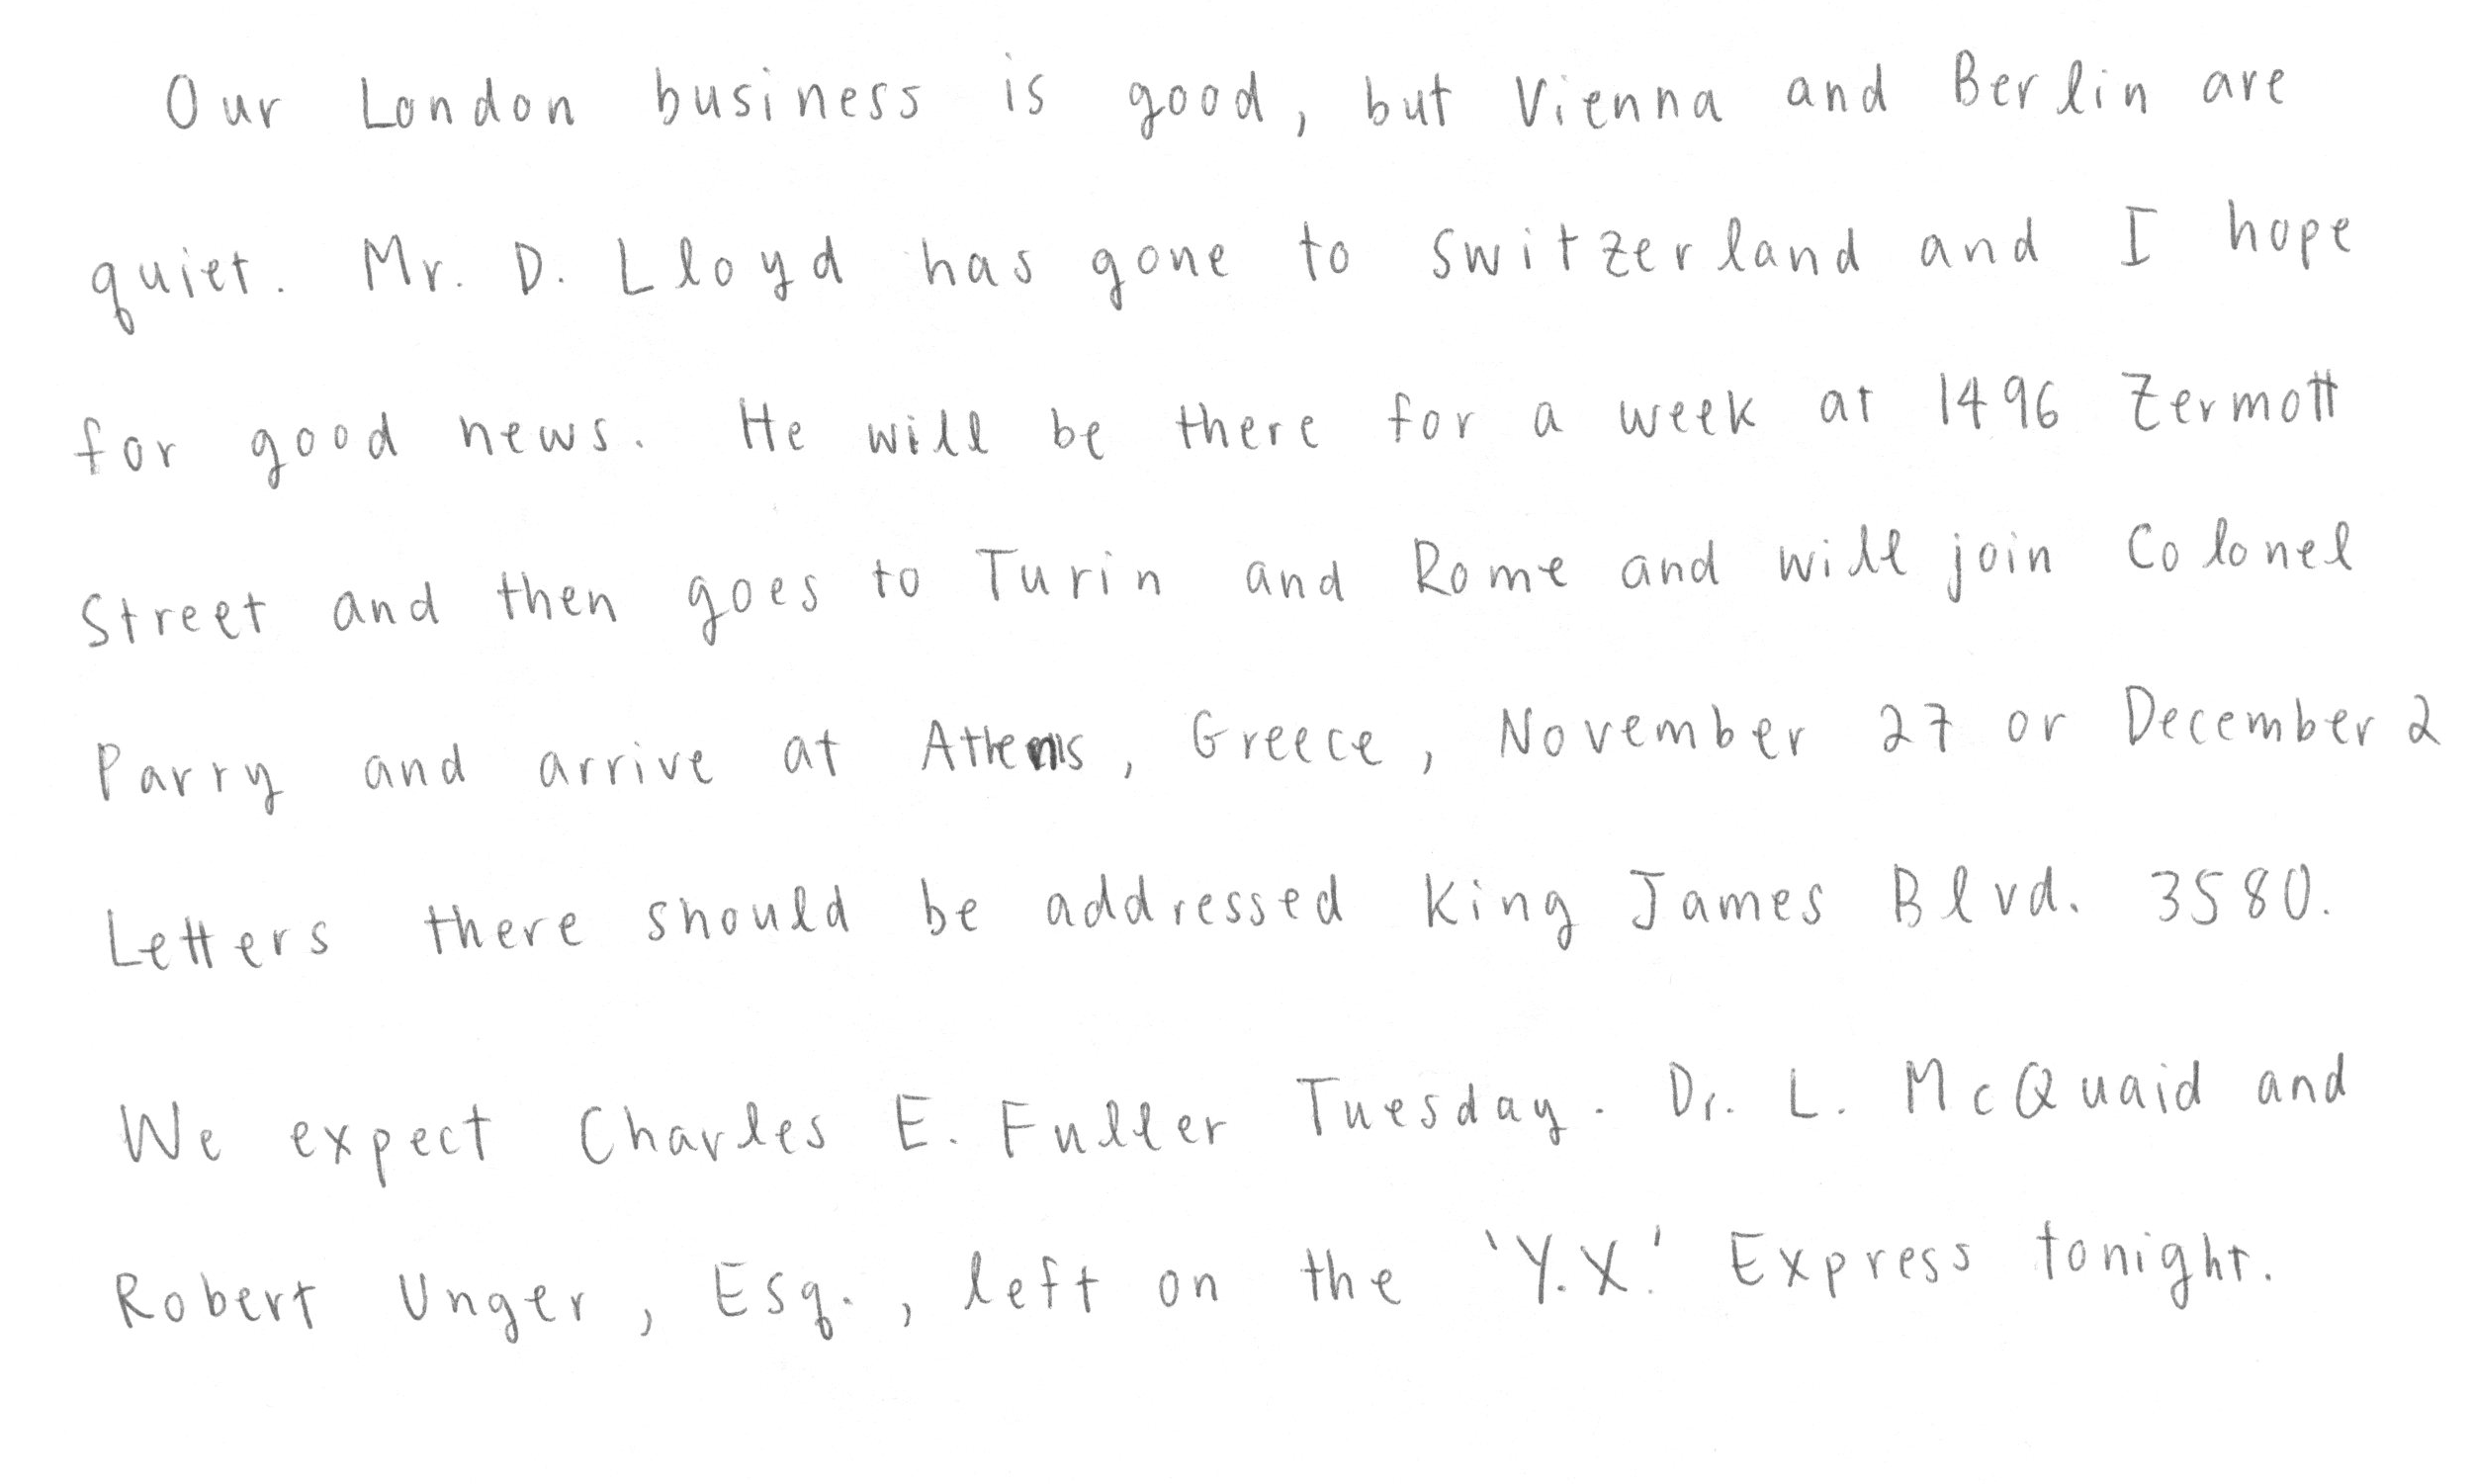 Our London business is good, but Vienna and Berlin are
quiet. Mr. D. Lloyd has gone to Switzerland and I hope
for good news. He will be there for a week at 1496 Zermott
Street and then goes to Turin and Rome and will join Colonel
Parry and arrive at Athens, Greece, November 27 or December 2
Letters there should be addressed King James Blvd. 3580.
We expect Charles E. Fuller Tuesday. Dr. L. McQuaid and
Robert Unger, Esq., left on the 'Y.X.' Express tonight.